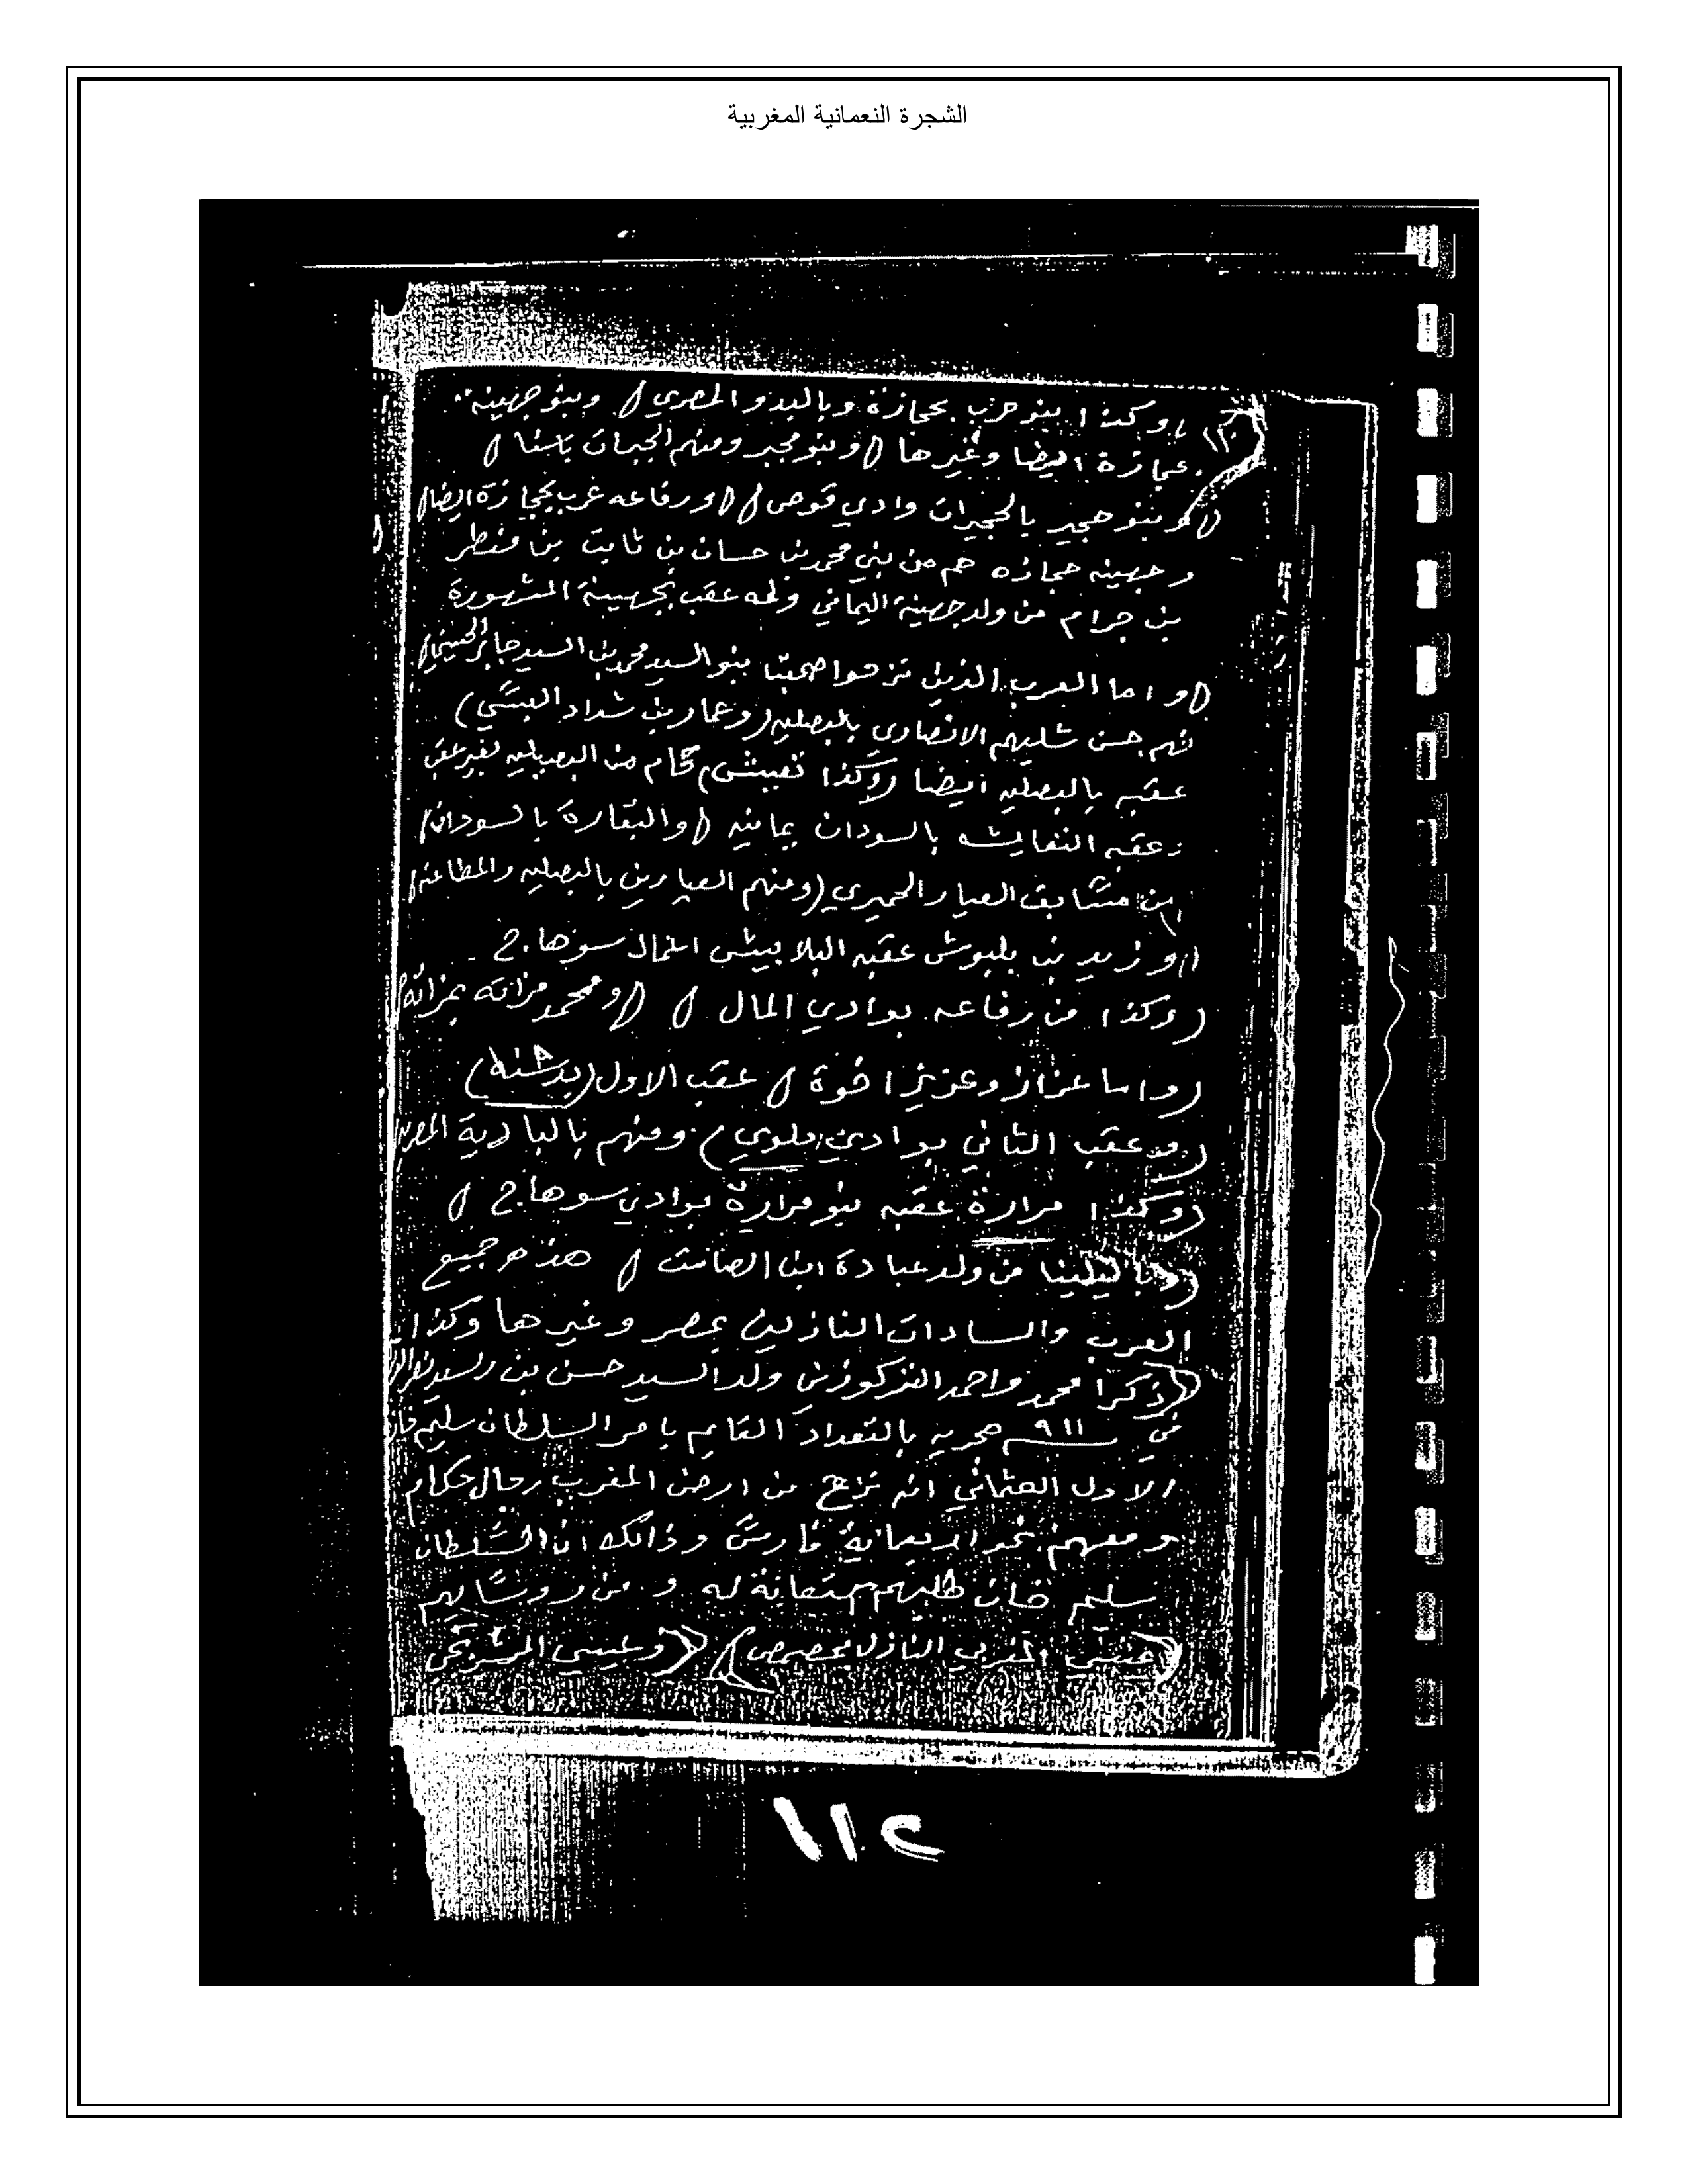 الشجرة النعمانية المغربية
وكذا بنو حرب بحجازة وبالبدو المصري / وبنو جهينه
حجازة ايضا وغيرها / وبنو مجبر ومنهم الجبرات باسنا /
/ وبنو حجير بالحجيرات وادي قوص / / ورفاعه غرب بحجازة ايضا /
وجهينه حجازه هم من بني محمد بن حسان بن ثابت بن
بن جرام من ولد جهينة اليماني وله عقب بجهينة المشهورة
/ واما العرب الذين نزحوا صحبتنا بنو السيد محمد بن السيد جابر الحسيني /
حسن شليهم الانصاري بالبصليه (وعمار بن شداد العبسي)
عقبه بالبصليه ايضا (وكذا نفيش من البصيليه لغير عقب
وعقبه النفايشه بالسودان يمانيه / والبقارة بالسودان /
بن العيار الحميري (ومنهم العيارين بالبصليه والمطاعنه /
/ وزيد بن بلبوش عقبه البلابيش سوهاج
(وكذا من رفاعه بوادي المال / / ومحمد مزاته بمزاته
(واما عزاز وعزيز اخوة / عقب الاول (بدشنه)
(وعقب الثاني بوادي ملوي) ومنهم بالبادية
(وكذا مرارة عقبه بنو مرارة بوادي سوهاج /
من ولد عبادة ابن الصامت / هذه جميع
العرب والسادات النازلين بمصر وغيرها وكذا
(ذكرا محمد واحمد المذكورين ولد السيد حسن بن
في ٩١١ هجريه بالتعداد القايم بامر السلطان سليم خان
الاول العثماني انه نزح من ارض المغرب رجال حكام
ومعهم نحو اربعماية فارس وذالك ان السلطان
سليم خان طلبهم له ومن روسايهم
المغربي النازل) (وعيسي
١١٢